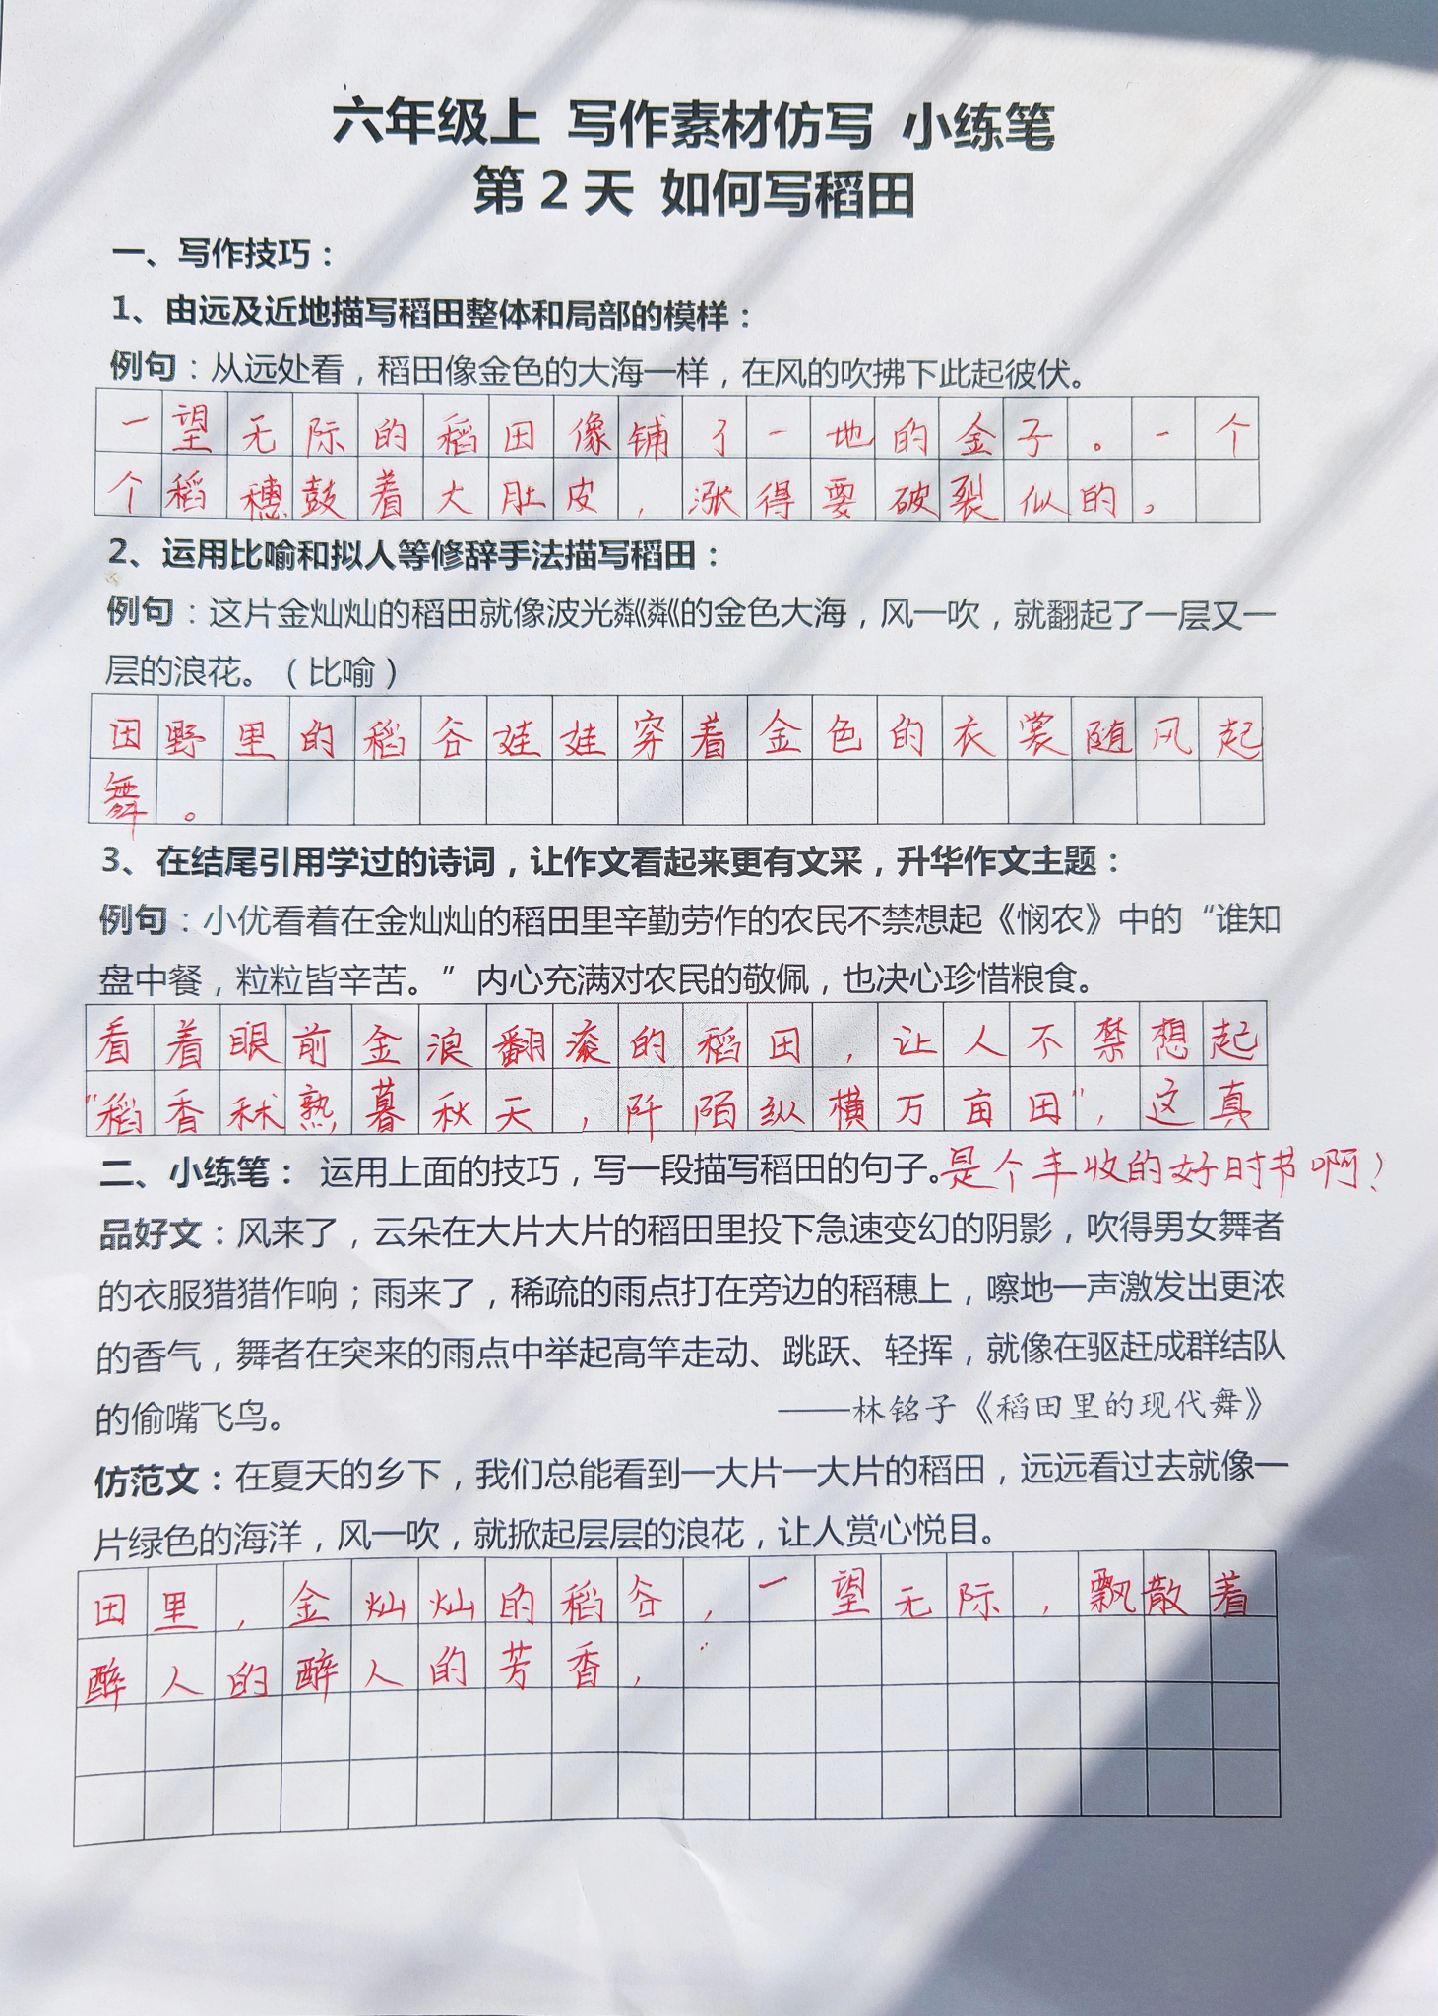 六年级上 写作素材仿写 小练笔
第2天 如何写稻田
一、写作技巧：
1、由远及近地描写稻田整体和局部的模样：
例句：从远处看，稻田像金色的大海一样，在风的吹拂下此起彼伏。
一望无际的稻田像铺了一地的金子。一个
个稻穗鼓着大肚皮，涨得要破裂似的。
2、运用比喻和拟人等修辞手法描写稻田：
例句：这片金灿灿的稻田就像波光粼粼的金色大海，风一吹，就翻起了一层又一
层的浪花。（比喻）
田野里的稻谷娃娃穿着金色的衣裳随风起
舞。
3、在结尾引用学过的诗词，让作文看起来更有文采，升华作文主题：
例句：小优看着在金灿灿的稻田里辛勤劳作的农民不禁想起《悯农》中的“谁知
盘中餐，粒粒皆辛苦。”内心充满对农民的敬佩，也决心珍惜粮食。
看着眼前金浪翻滚的稻田，让人不禁想起
“稻香秫熟暮秋天，阡陌纵横万亩田”，这真
是个丰收的好时节啊！
二、小练笔： 运用上面的技巧，写一段描写稻田的句子。
品好文：风来了，云朵在大片大片的稻田里投下急速变幻的阴影，吹得男女舞者
的衣服猎猎作响；雨来了，稀疏的雨点打在旁边的稻穗上，嚓地一声激发出更浓
的香气，舞者在突来的雨点中举起高竿走动、跳跃、轻挥，就像在驱赶成群结队
的偷嘴飞鸟。
——林铭子《稻田里的现代舞》
仿范文：在夏天的乡下，我们总能看到一大片一大片的稻田，远远看过去就像一
片绿色的海洋，风一吹，就掀起层层的浪花，让人赏心悦目。
田里，金灿灿的稻谷，一望无际，飘散着
醉人的醉人的芳香，